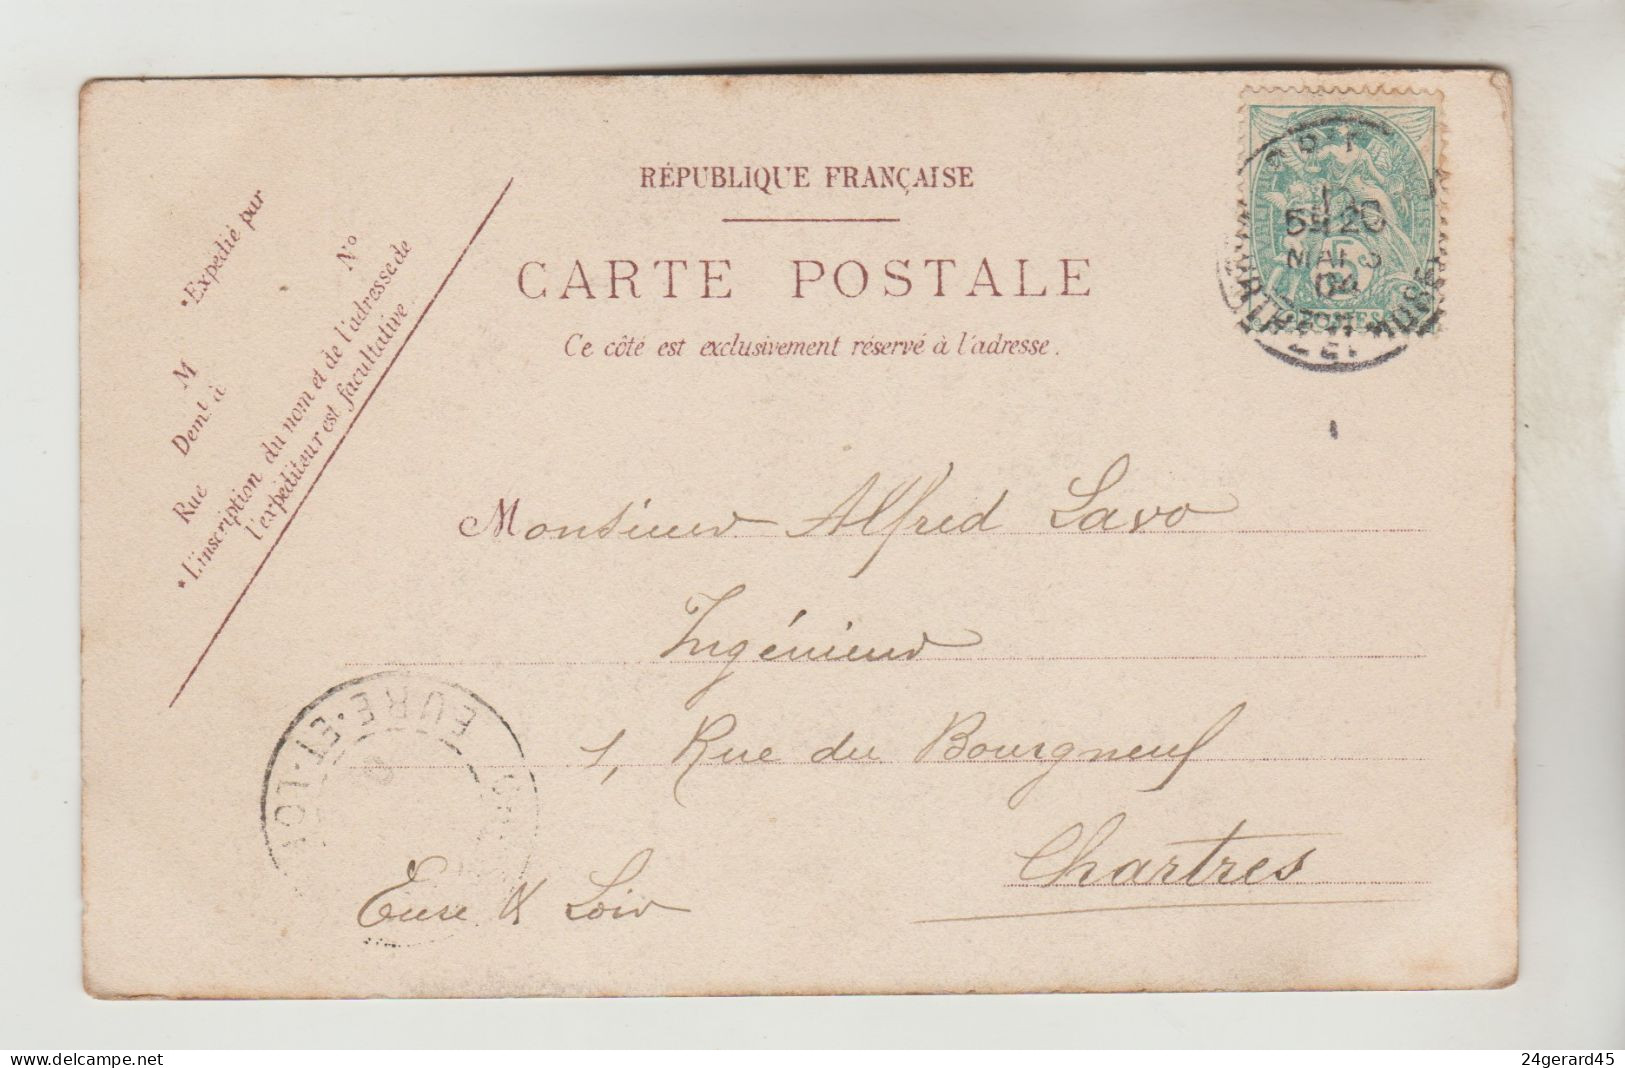 RÉPUBLIQUE FRANÇAISE
CARTE POSTALE
Ce côté est exclusivement réservé à l'adresse.
*Expédié par
M
Dem.t à
Rue
N°
*L'inscription du nom et de l'adresse de
l'expéditeur est facultative.
5E 20
MARS
04
5
Monsieur Alfred Lavo
Ingénieur
1, Rue du Bourgneuf
Chartres
Eure & Loir
EURE-ET-LOIR
24gerard45